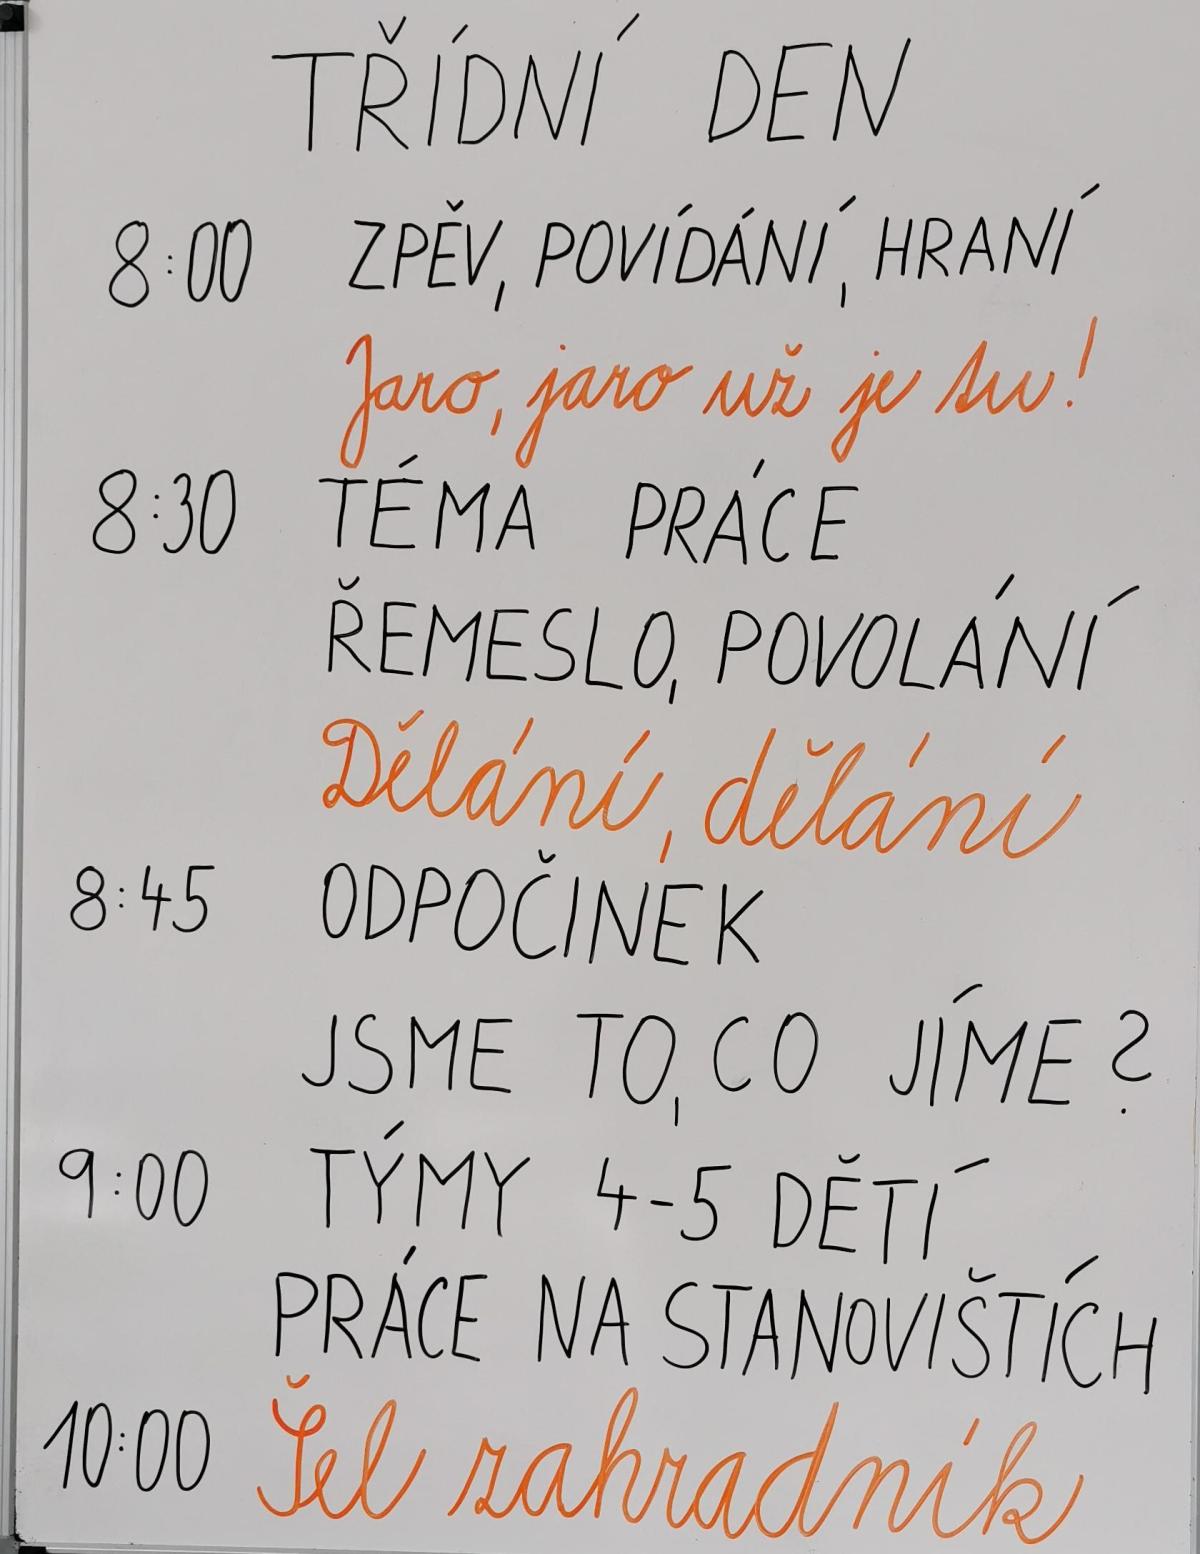 TŘÍDNÍ DEN
8:00 ZPĚV, POVÍDÁNÍ, HRANÍ
Jaro, jaro už je tu!
8:30 TÉMA PRÁCE
ŘEMESLO, POVOLÁNÍ
Dělání, dělání
8:45 ODPOČINEK
JSME TO, CO JÍME?
9:00 TÝMY 4-5 DĚTÍ
PRÁCE NA STANOVIŠTÍCH
10:00 Šel zahradník